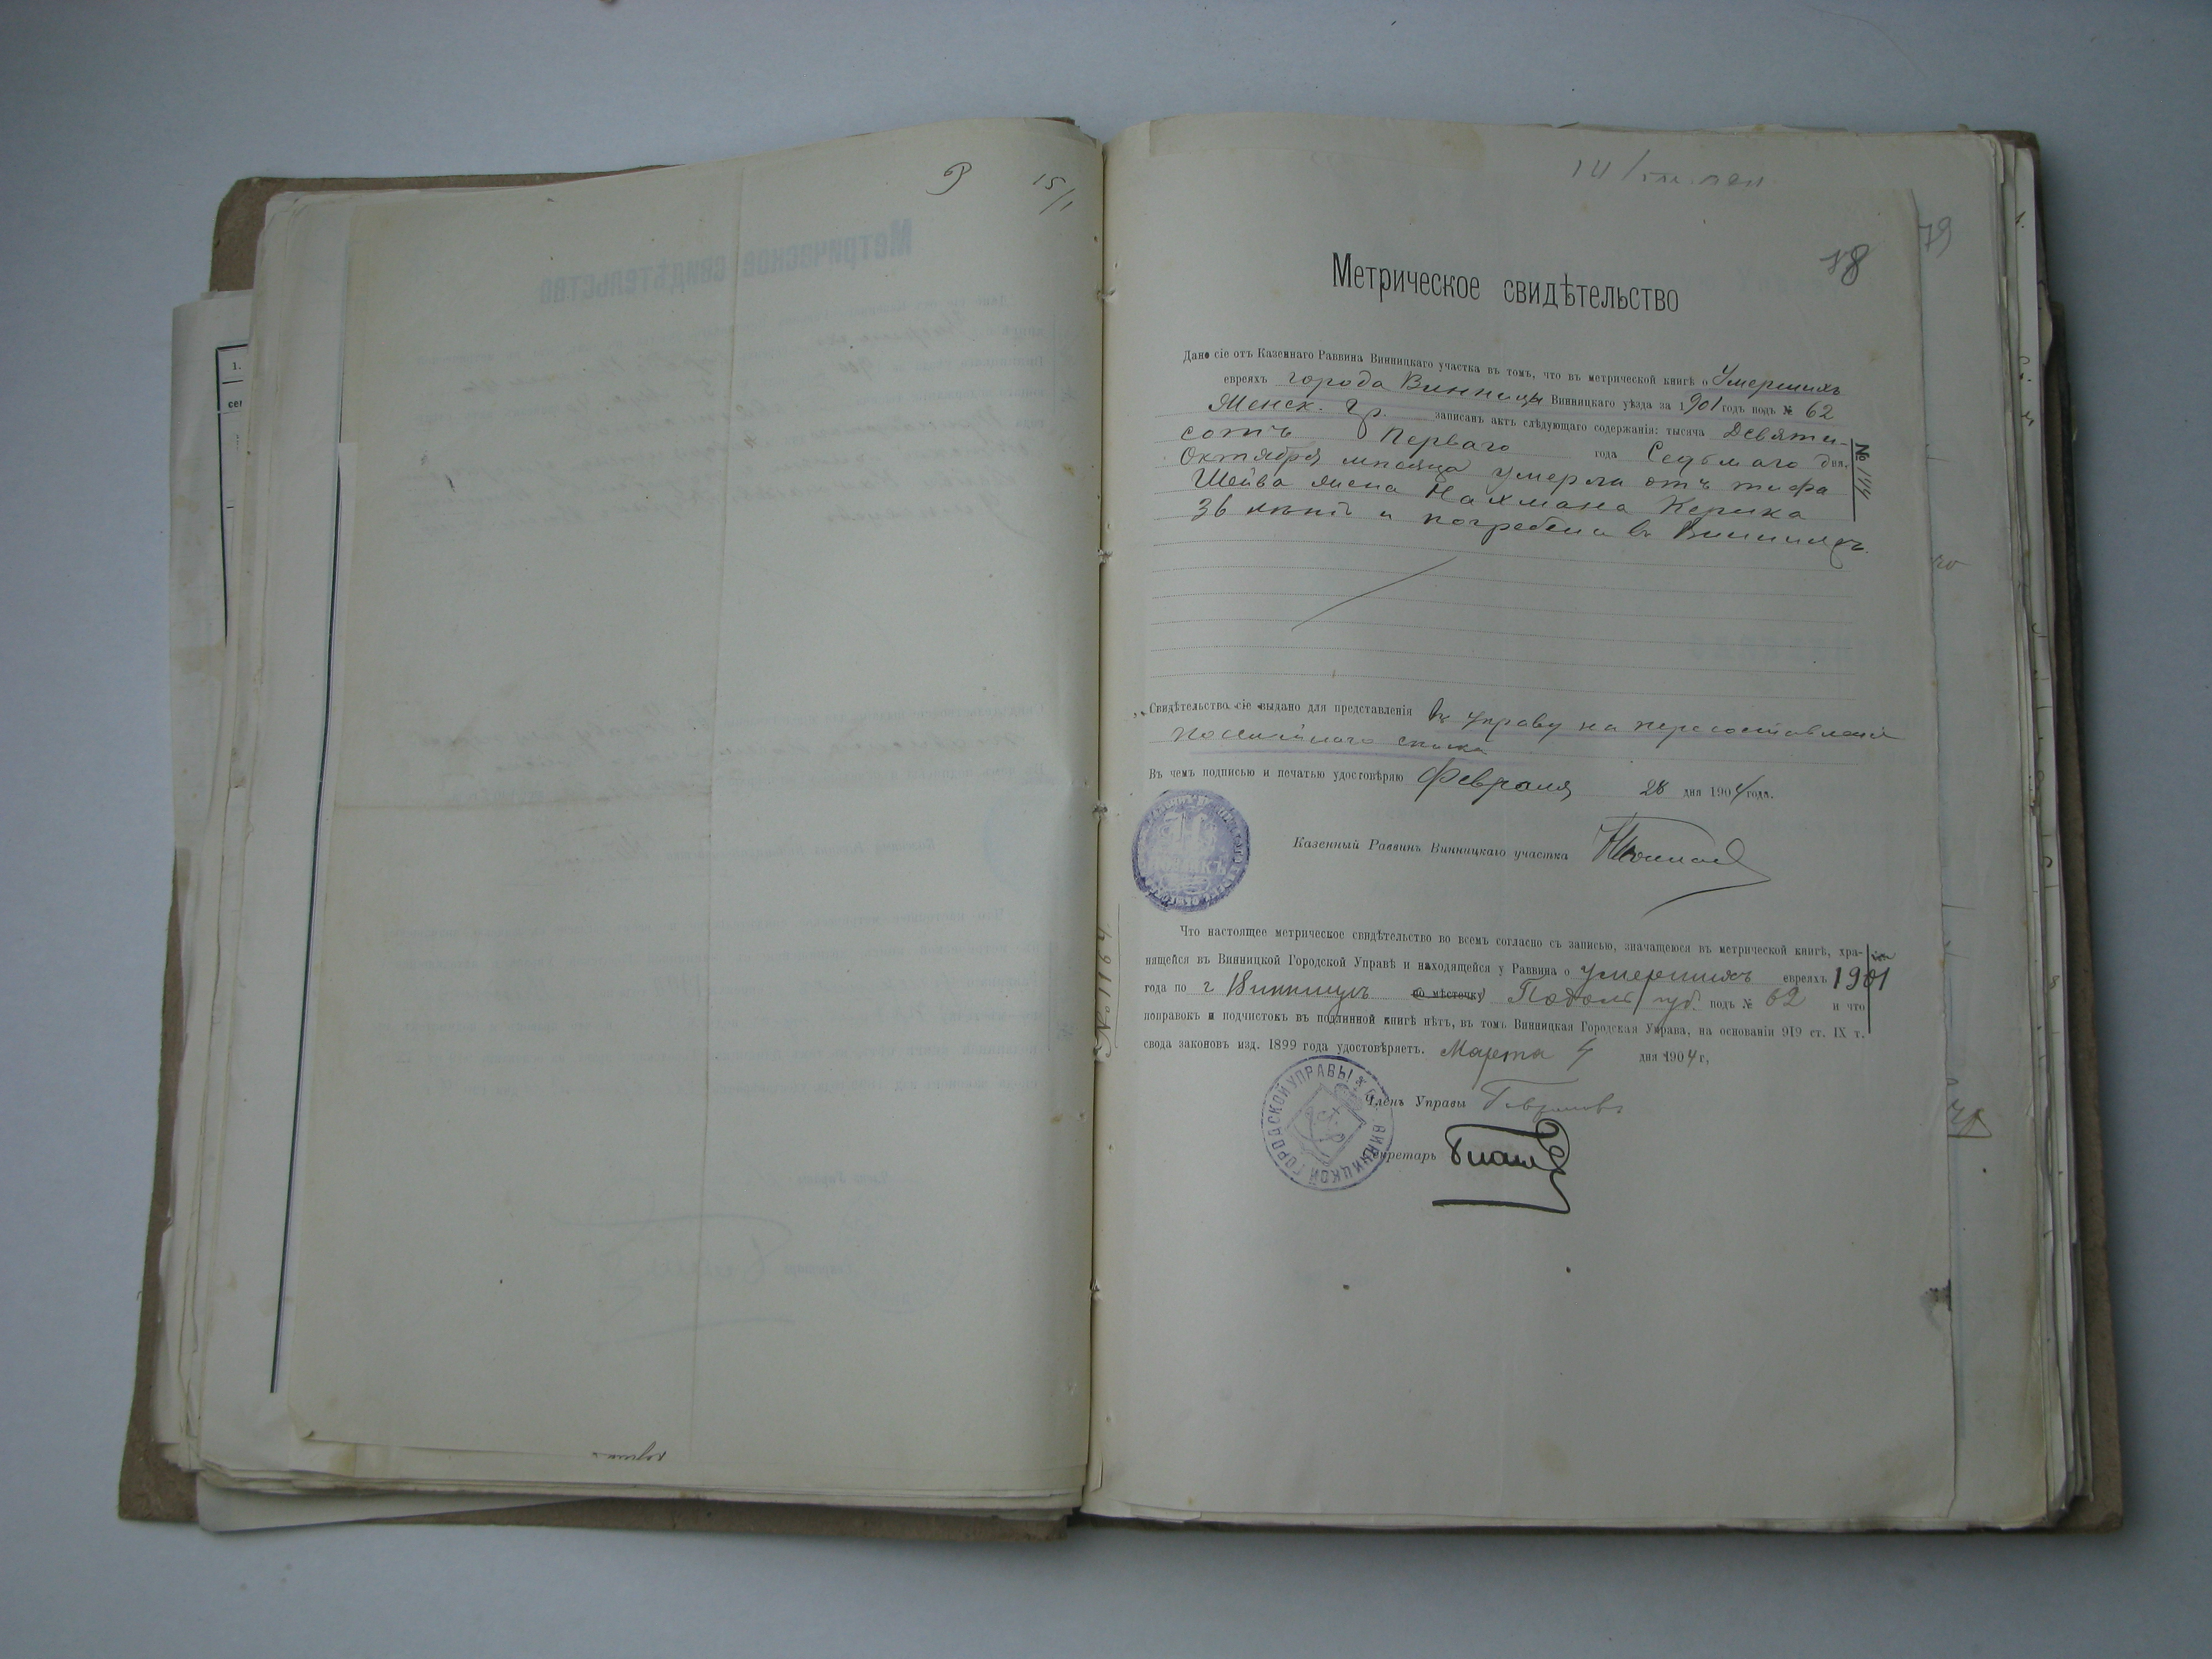 15/1
78
79
Метрическое свидѣтельство
Дано сіе отъ Казеннаго Раввина Винницкаго участка въ томъ, что въ метрической книгѣ о Умершихъ
евреяхъ города Винницы Винницкаго уѣзда за 1901 годъ подъ № 62
Женск. гр. записанъ актъ слѣдующаго содержанія: тысяча Девяти-
сотъ Перваго года Седьмого дня
Октября мѣсяца умерла отъ тифа
Шейва жена Нахмана Керика
36 лѣтъ и погребена въ Винницѣ.
№ 144
Свидѣтельство сіе выдано для представленія въ управу на пересоставленія
посемейнаго списка
Въ чемъ подписью и печатью удостовѣряю Февраля 28 дня 1904 года.
Казенный Раввинъ Винницкаго участка
Что настоящее метрическое свидѣтельство во всемъ согласно съ записью, значащеюся въ метрической книгѣ, хра-
нящейся въ Винницкой Городской Управѣ и находящейся у Раввина о умершихъ евреяхъ 1901
года по г Винницѣ по мѣстечку Подольс. губ. подъ № 62 и что
поправокъ и подчистокъ въ подлинной книгѣ нѣтъ, въ томъ Винницкая Городская Управа, на основаніи 919 ст. IX т.
свода законовъ изд. 1899 года удостовѣряетъ. Марта 4 дня 1904 г,
№ 1164
Членъ Управы
Секретарь
ВИННИЦКОЙ ГОРОДСКОЙ УПРАВЫ